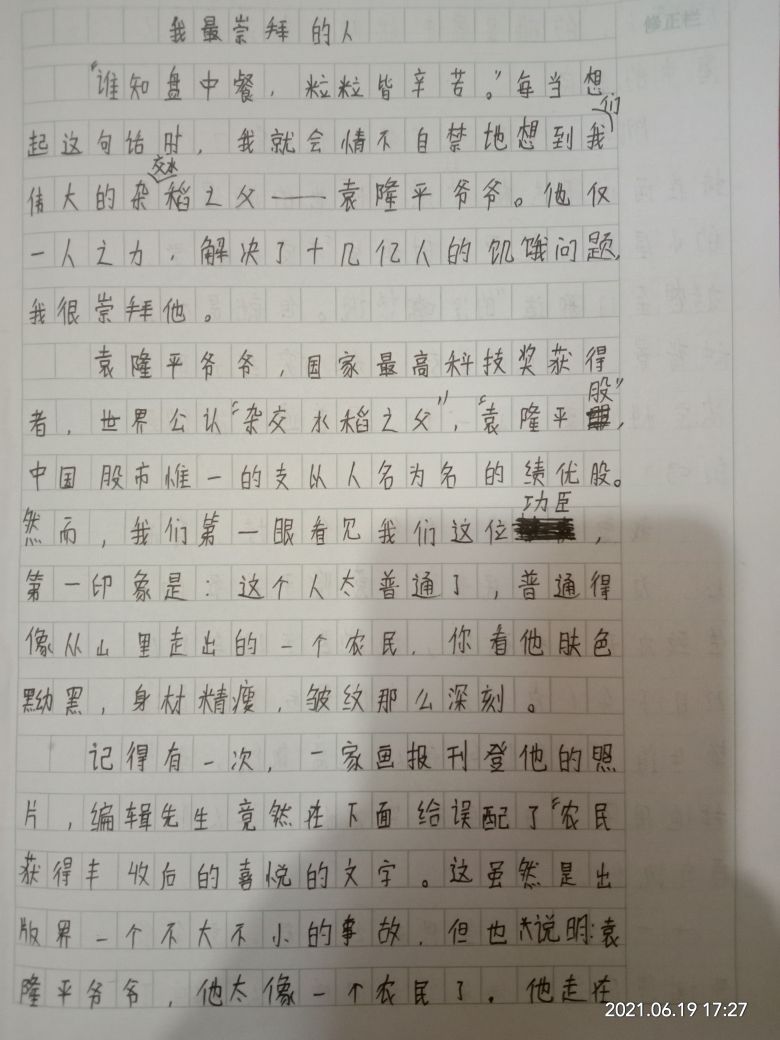 我最崇拜的人
修正栏
"谁知盘中餐，粒粒皆辛苦。"每当想
起这句话时，我就会情不自禁地想到我们
伟大的杂交水稻之父——袁隆平爷爷。他仅
一人之力，解决了十几亿人的饥饿问题，
我很崇拜他。
袁隆平爷爷，国家最高科技奖获得
者，世界公认"杂交水稻之父"，"袁隆平股"，
中国股市惟一的支以人名为名的绩优股。
然而，我们第一眼看见我们这位功臣，
第一印象是：这个人太普通了，普通得
像从山里走出的一个农民，你看他肤色
黝黑，身材精瘦，皱纹那么深刻。
记得有一次，一家画报刊登他的照
片，编辑先生竟然在下面给误配了"农民
获得丰收后的喜悦的文字。这虽然是出
版界一个不大不小的事故，但也说明：袁
隆平爷爷，他太像一个农民了。他走在
2021.06.19 17:27